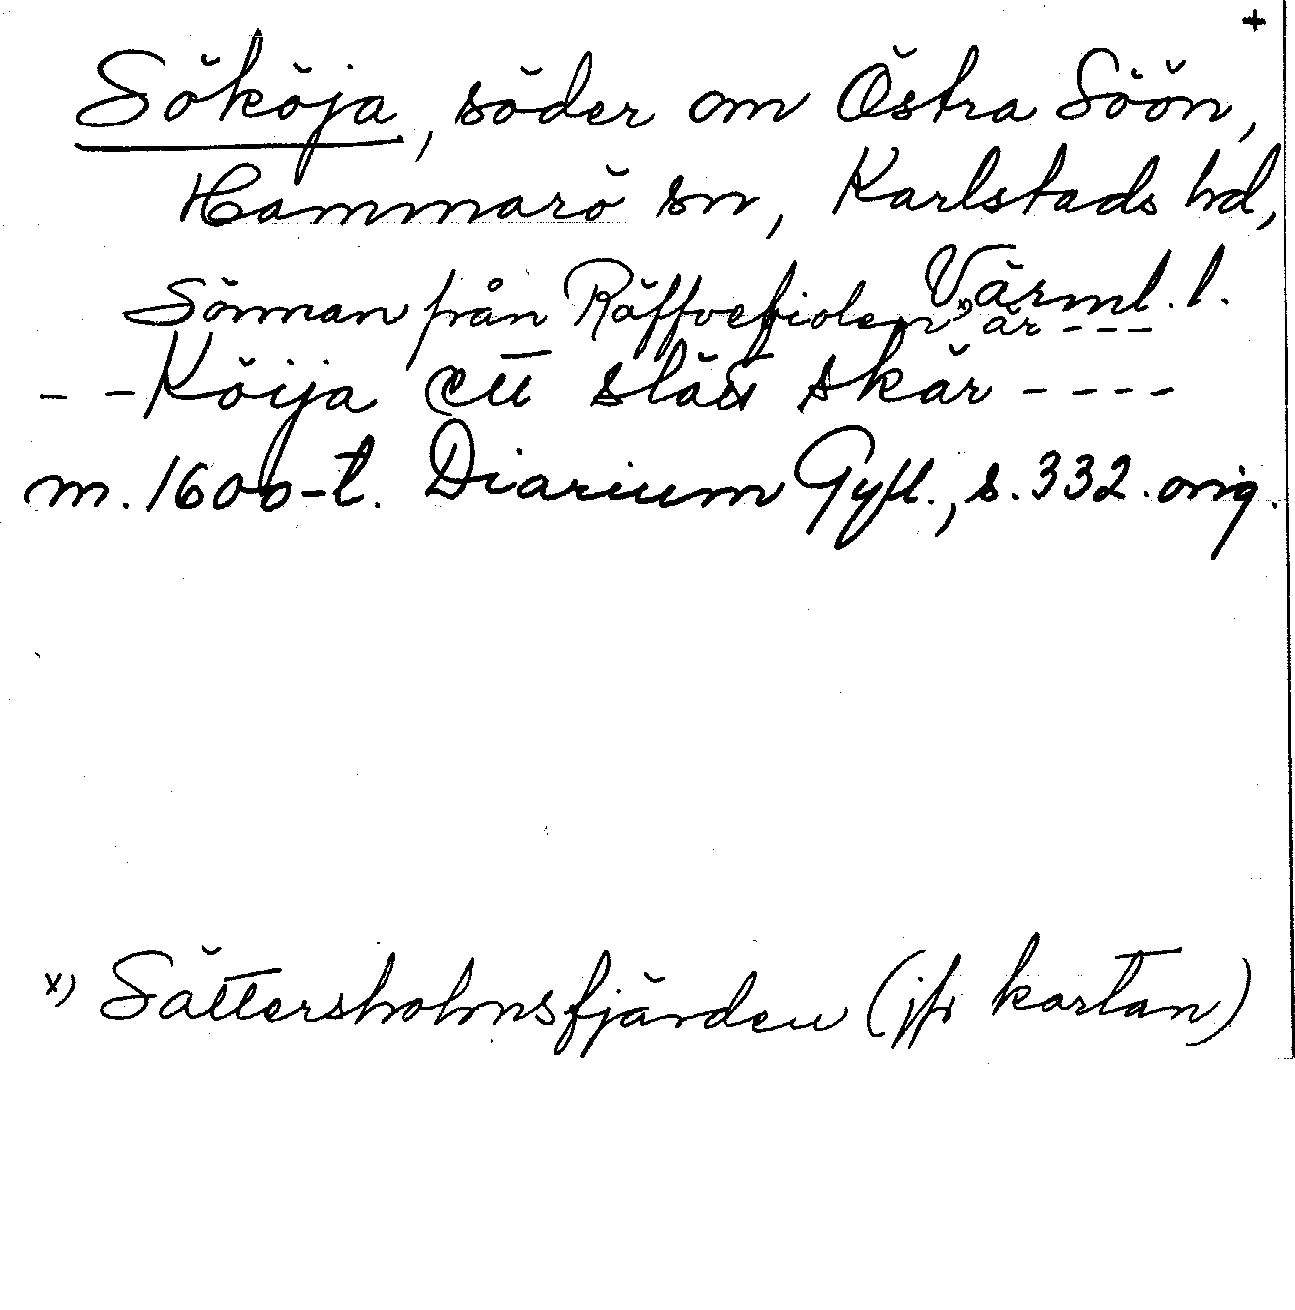 +
Sököja, söder om Östra Söön,
Hammarö sn, Karlstads hd,
Värml. l.
Sönnan från Räffvefiolen x) är ---
- - Köija ett slätt skär ----
m. 1600-t. Diarium Gyll., s. 332. orig.
x) Sättersholmsfjärden (jfr kartan)